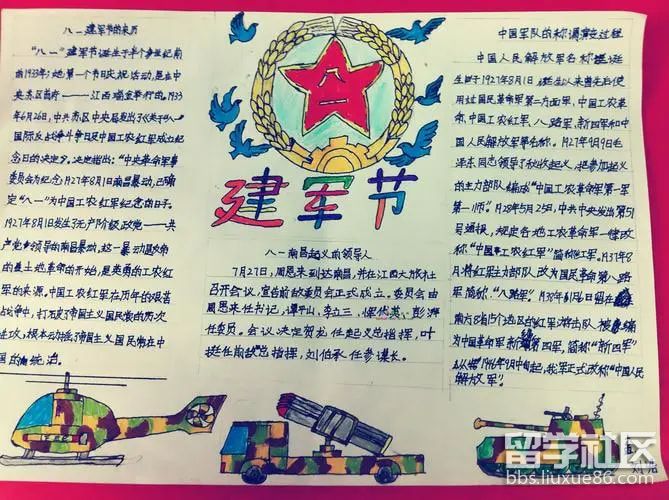 八一建军节的来历
"八一"建军节诞生于半个多世纪前
的1933年,她第一个节日庆祝活动,是在中
央苏区首府——江西瑞金举行的。1933
年6月26日,中共苏区中央局发出了《关于"八一"
国际反战争斗争日及中国工农红军成立纪
念日的决定》,决定指出:"中央革命军事
委员会为纪念1927年8月1日南昌暴动,已确
定"八一"为中国工农红军纪念的日子。
1927年8月1发生了无产阶级政党——共
产党领导的南昌暴动,这一暴动是
的土地革命的开始,是英勇的工农红
军的来源。中国工农红军在历年的艰苦
战争中,打破了帝国主义国民党的历次
进攻,根本动摇了帝国主义国民党在中
国的统治。
八一
建军节
八一南昌起义的领导人
7月27日,周恩来到达南昌,并在江西大旅社
召开会议,宣告前敌委员会正式成立。委员会由
周恩来任书记,谭平山、李立三、恽代英、彭湃
任委员。会议决定贺龙任起义总指挥,叶
挺任前敌总指挥,刘伯承任参谋长。
中国军队的称谓演变过程
中国人民解放军名称诞
生时于1927年8月1日诞生以来曾先后使
用过国民革命军第二方面军、中国工农革
命军、中国工农红军、八路军、新四军和中
国人民解放军等名称。1927年9月9日毛
泽东同志领导了秋收起义,把参加起义
的主力部队编成"中国工农革命军第一军
第一师"。1928年5月25日,中共中央发出第51
号通报,规定各地工农革命军一律改
称"中国工农红军"简称红军。1937年8
月将红军主力部队改为国民革命军第八路
军简称"八路军"。
南方8省15个地区的红军游击队
为中国革命军新编第四军,简称"新四军"
从1946年9月中旬起,我军正式改称"中国人民
解放军"。
留学社区
bbs.liuxue86.com